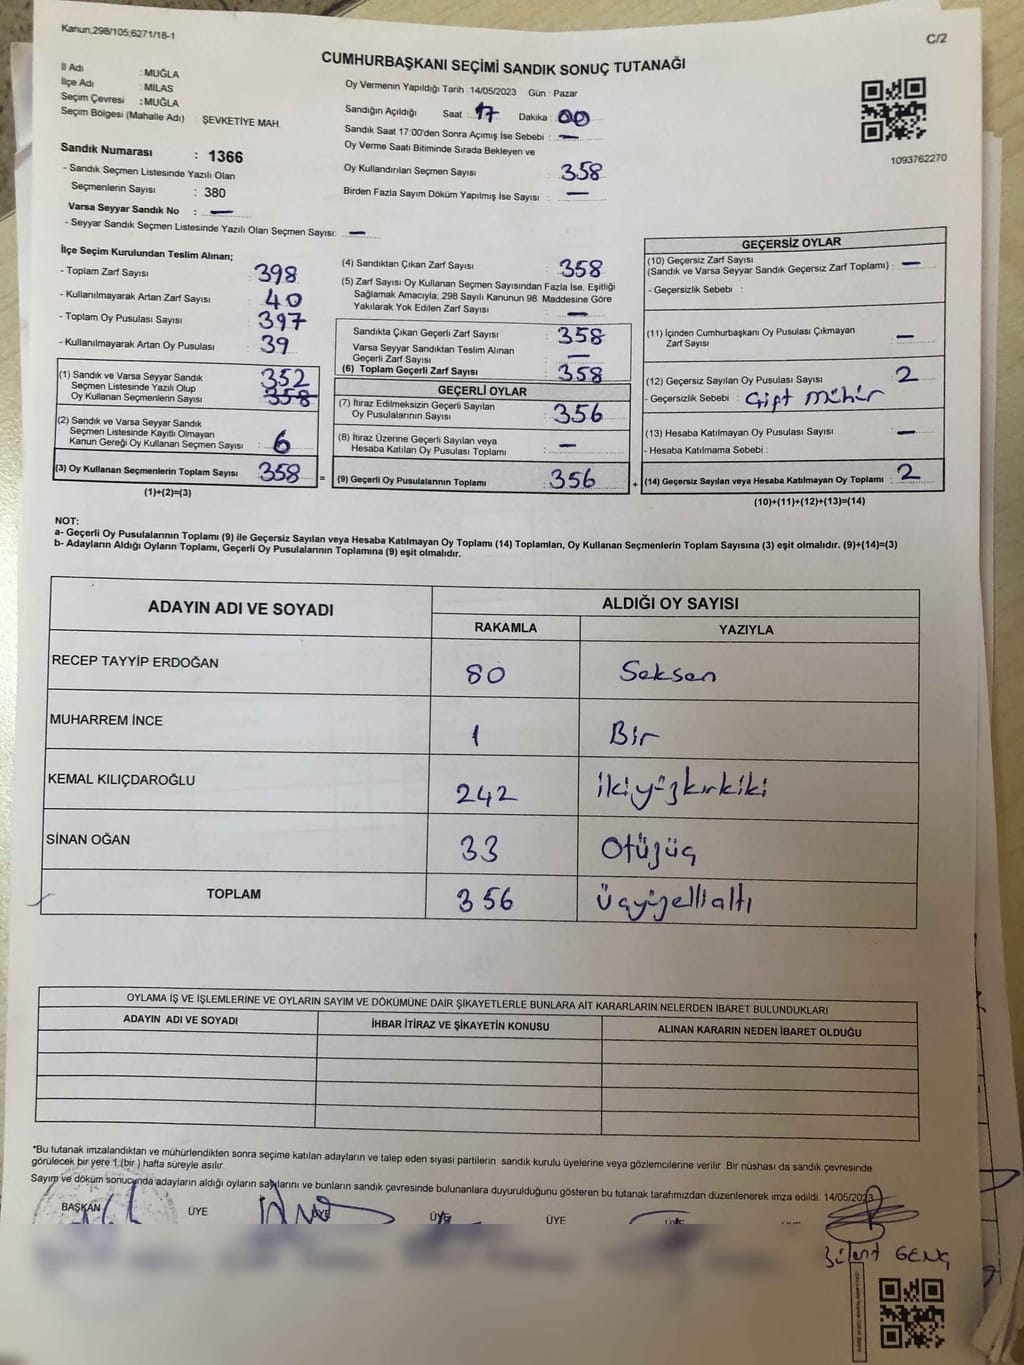 Kanun,298/105;6271/18-1
C/2
CUMHURBAŞKANI SEÇİMİ SANDIK SONUÇ TUTANAĞI
İl Adı : MUĞLA
İlçe Adı : MİLAS
Seçim Çevresi : MUĞLA
Seçim Bölgesi (Mahalle Adı) : ŞEVKETİYE MAH.
Oy Vermenin Yapıldığı Tarih : 14/05/2023 Gün : Pazar
Sandığın Açıldığı Saat 17 Dakika : 00
Sandık Saat 17:00'den Sonra Açımış İse Sebebi : —
Oy Verme Saati Bitiminde Sırada Bekleyen ve
Oy Kullandırılan Seçmen Sayısı : 358
Birden Fazla Sayım Döküm Yapılmış İse Sayısı : —
1093762270
Sandık Numarası : 1366
- Sandık Seçmen Listesinde Yazılı Olan
Seçmenlerin Sayısı : 380
Varsa Seyyar Sandık No : —
- Seyyar Sandık Seçmen Listesinde Yazılı Olan Seçmen Sayısı: —
İlçe Seçim Kurulundan Teslim Alınan;
- Toplam Zarf Sayısı : 398
- Kullanılmayarak Artan Zarf Sayısı : 40
- Toplam Oy Pusulası Sayısı : 397
- Kullanılmayarak Artan Oy Pusulası : 39
(1) Sandık ve Varsa Seyyar Sandık
Seçmen Listesinde Yazılı Olup
Oy Kullanan Seçmenlerin Sayısı : 352
358
(2) Sandık ve Varsa Seyyar Sandık
Seçmen Listesinde Kayıtlı Olmayan
Kanun Gereği Oy Kullanan Seçmen Sayısı : 6
(3) Oy Kullanan Seçmenlerin Toplam Sayısı : 358 =
(1)+(2)=(3)
(4) Sandıktan Çıkan Zarf Sayısı : 358
(5) Zarf Sayısı Oy Kullanan Seçmen Sayısından Fazla İse, Eşitliği
Sağlamak Amacıyla, 298 Sayılı Kanunun 98. Maddesine Göre
Yakılarak Yok Edilen Zarf Sayısı : —
Sandıkta Çıkan Geçerli Zarf Sayısı : 358
Varsa Seyyar Sandıktan Teslim Alınan
Geçerli Zarf Sayısı : —
(6) Toplam Geçerli Zarf Sayısı : 358
GEÇERLİ OYLAR
(7) İtiraz Edilmeksizin Geçerli Sayılan
Oy Pusulalarının Sayısı : 356
(8) İtiraz Üzerine Geçerli Sayılan veya
Hesaba Katılan Oy Pusulası Toplamı : —
(9) Geçerli Oy Pusulalarının Toplamı : 356 +
GEÇERSİZ OYLAR
(10) Geçersiz Zarf Sayısı
(Sandık ve Varsa Seyyar Sandık Geçersiz Zarf Toplamı) : —
- Geçersizlik Sebebi :
(11) İçinden Cumhurbaşkanı Oy Pusulası Çıkmayan
Zarf Sayısı : —
(12) Geçersiz Sayılan Oy Pusulası Sayısı : 2
- Geçersizlik Sebebi : Çipt mühür
(13) Hesaba Katılmayan Oy Pusulası Sayısı : —
- Hesaba Katılmama Sebebi :
(14) Geçersiz Sayılan veya Hesaba Katılmayan Oy Toplamı : 2
(10)+(11)+(12)+(13)=(14)
NOT:
a- Geçerli Oy Pusulalarının Toplamı (9) ile Geçersiz Sayılan veya Hesaba Katılmayan Oy Toplamı (14) Toplamları, Oy Kullanan Seçmenlerin Toplam Sayısına (3) eşit olmalıdır. (9)+(14)=(3)
b- Adayların Aldığı Oyların Toplamı, Geçerli Oy Pusulalarının Toplamına (9) eşit olmalıdır.
ADAYIN ADI VE SOYADI ALDIĞI OY SAYISI
RAKAMLA YAZIYLA
RECEP TAYYİP ERDOĞAN 80 Seksen
MUHARREM İNCE 1 Bir
KEMAL KILIÇDAROĞLU 242 ikiyüzkırkiki
SİNAN OĞAN 33 Otüzüç
TOPLAM 356 Üçyüzellialtı
OYLAMA İŞ VE İŞLEMLERİNE VE OYLARIN SAYIM VE DÖKÜMÜNE DAİR ŞİKAYETLERLE BUNLARA AİT KARARLARIN NELERDEN İBARET BULUNDUKLARI
ADAYIN ADI VE SOYADI İHBAR İTİRAZ VE ŞİKAYETİN KONUSU ALINAN KARARIN NEDEN İBARET OLDUĞU
*Bu tutanak imzalandıktan ve mühürlendikten sonra seçime katılan adayların ve talep eden siyasi partilerin sandık kurulu üyelerine veya gözlemcilerine verilir .Bir nüshası da sandık çevresinde
görülecek bir yere 1 (bir ) hafta süreyle asılır.
Sayım ve döküm sonucunda adayların aldığı oyların sayılarını ve bunların sandık çevresinde bulunanlara duyurulduğunu gösteren bu tutanak tarafımızdan düzenlenerek imza edildi. 14/05/2023
BAŞKAN ÜYE ÜYE ÜYE ÜYE ÜYE
Bülent GENÇ